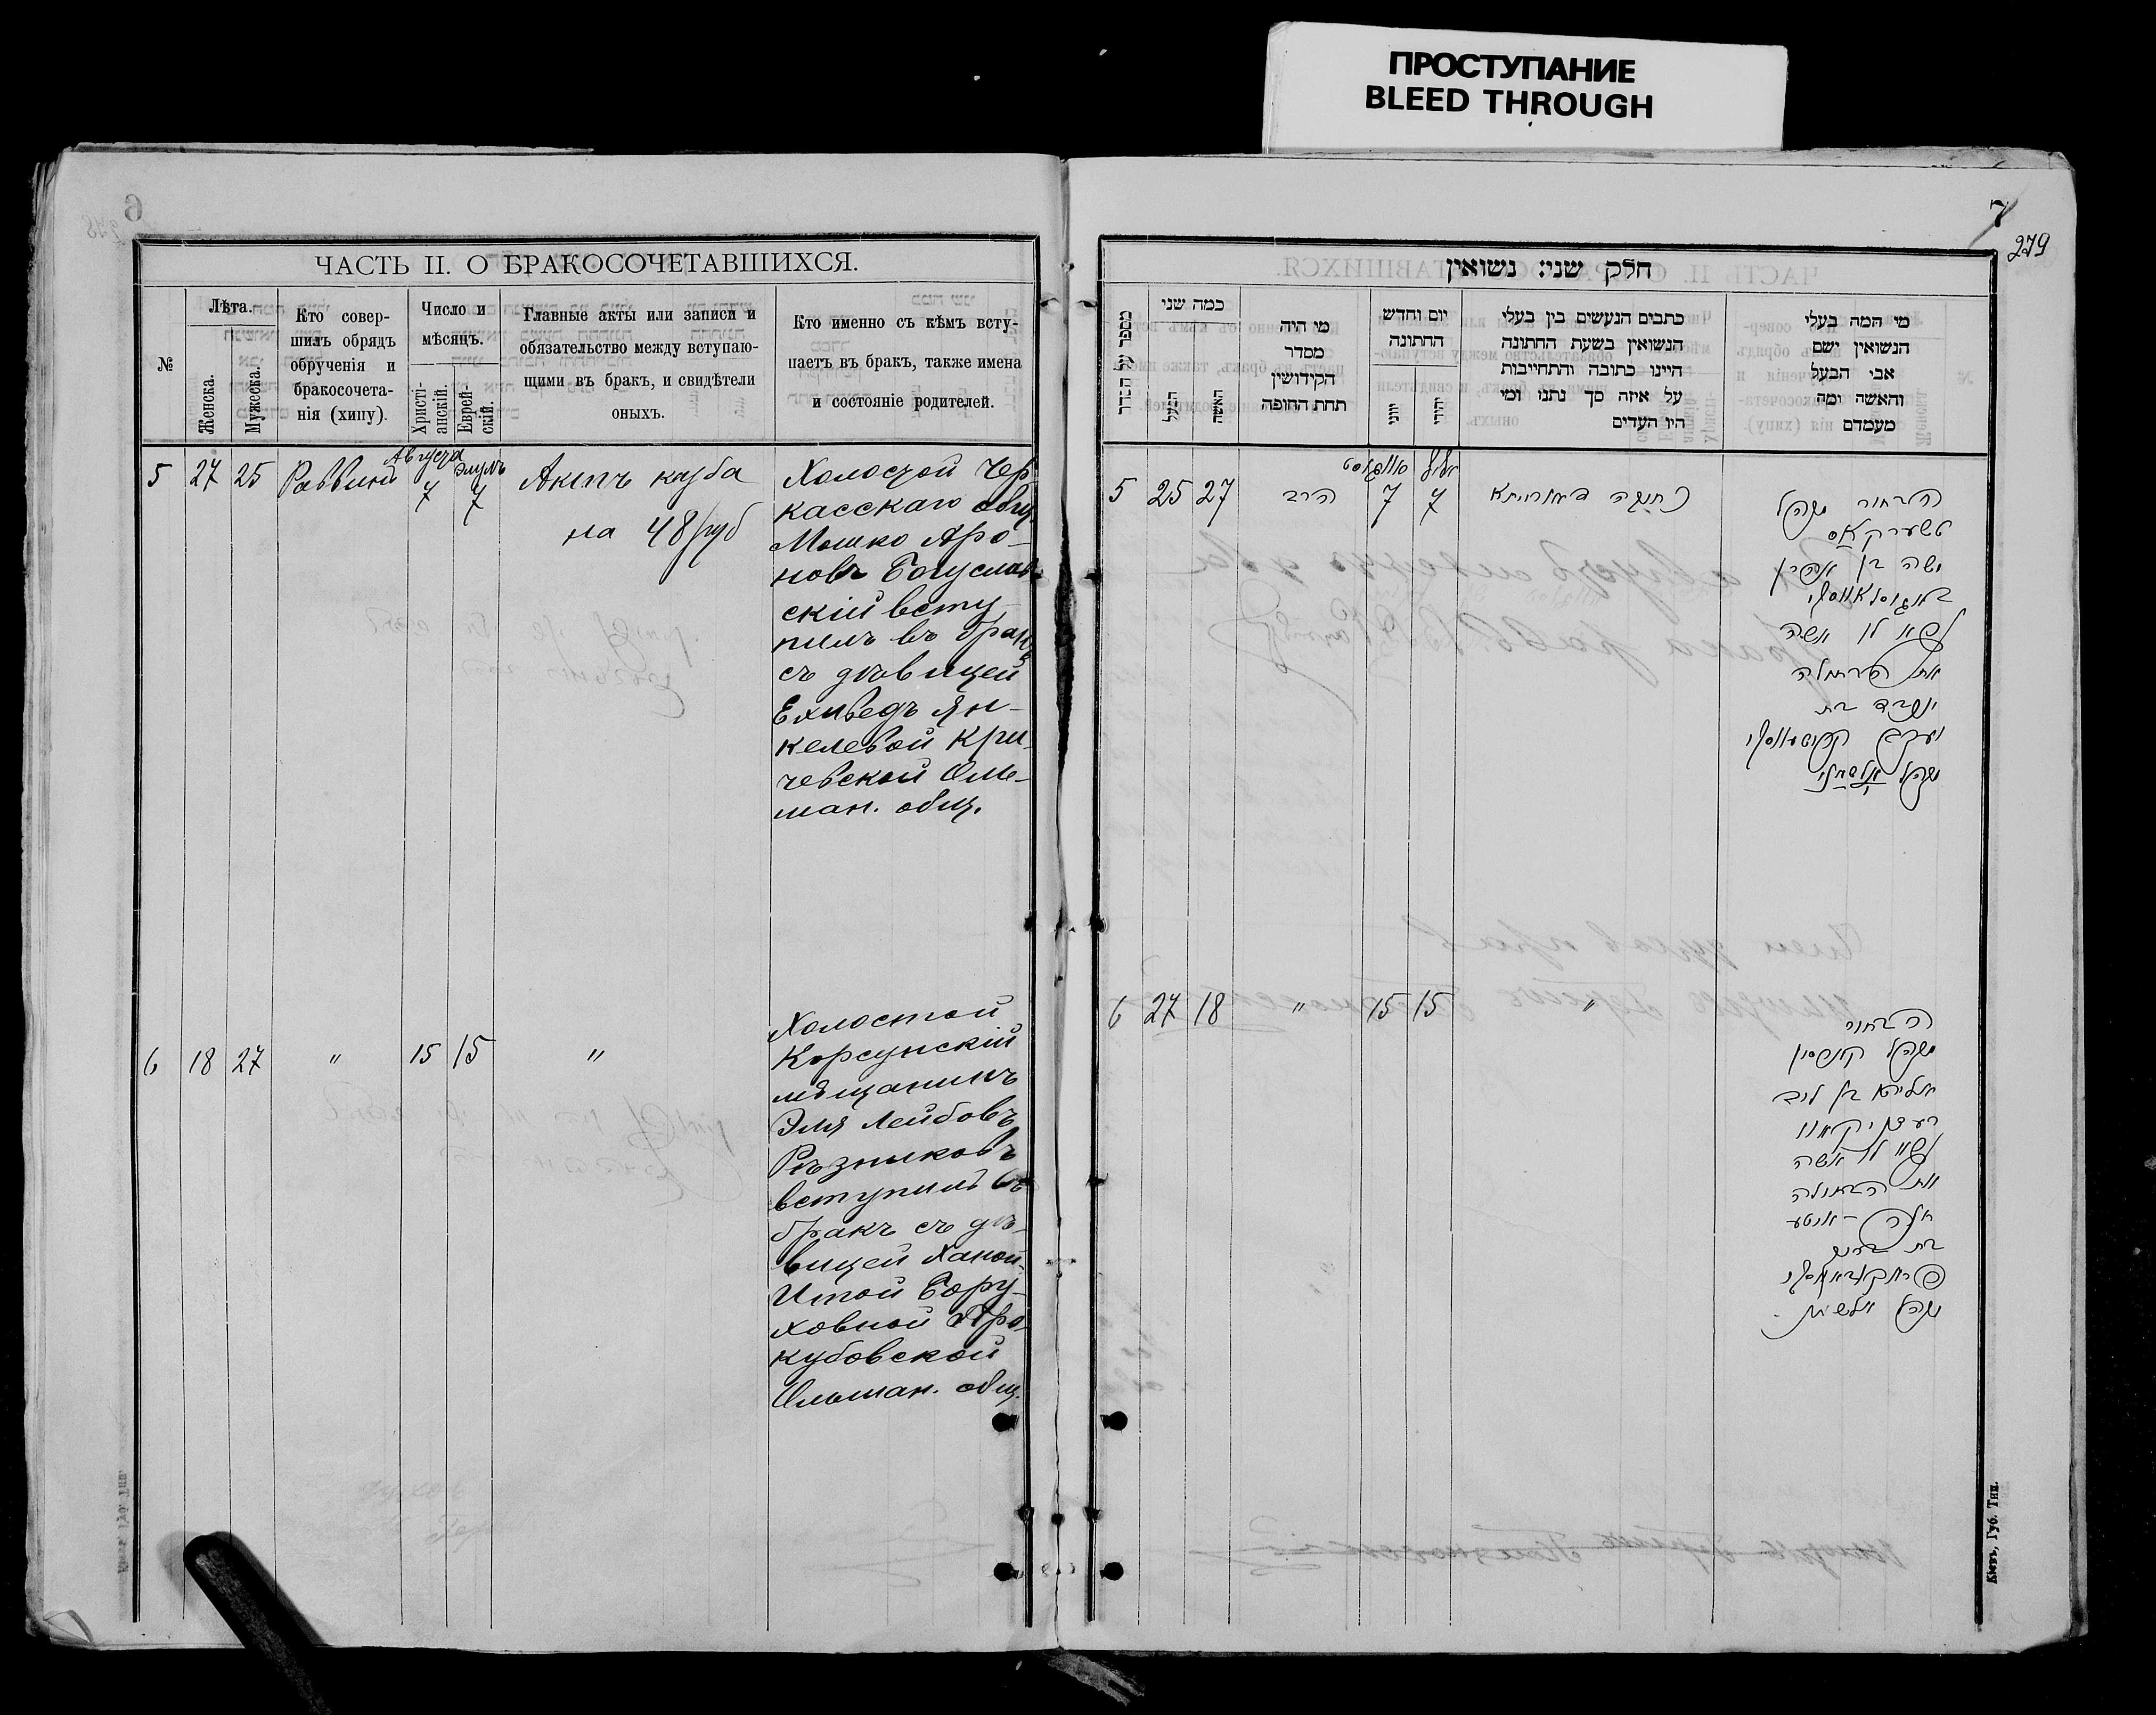 ПРОСТУПАНИЕ
BLEED THROUGH
ЧАСТЬ II. О БРАКОСОЧЕТАВШИХСЯ.
№
Лѣта.
Женска.
Мужеска.
Кто совер-
шилъ обрядъ
обрученія и
бракосочета-
нія (хипу).
Число и
мѣсяцъ.
Христі-
анскій.
Еврей-
скій.
Главные акты или записи и
обязательство между вступаю-
щими въ бракъ, и свидѣтели
оныхъ.
Кто именно съ кѣмъ всту-
паетъ въ бракъ, также имена
и состояніе родителей.
5 27 25 Раввинъ
Августа 7
Элулъ 7
Актъ
на 48 руб
Холостой Чер
касскаго общ.
Мошко Аро-
новъ Богуслав
скій всту
пилъ въ бракъ
съ дѣвицей
Ехвведъ Ян-
келевой Кри-
чевской Оль-
шан. общ.
6 18 27 " 15 15 "
Холостой
Корсунскій
мѣщанинъ
Эля Лейбовъ
Рѣзниковъ
вступилъ въ
бракъ съ дѣ-
вицей Ханой-
Итой Бору-
ховной Тра
кубовской
Ольшан. общ.
7
279
חלק שני: נשואין
מספר על הסדר
כמה שני
הבעל
האשה
מי היה
מסדר
הקידושין
תחת החופה
יום וחדש
החתונה
יוני
יהודי
כתבים הנעשים בין בעלי
הנשואין בשעת החתונה
היינו כתובה והתחייבות
על איזה סך נתנו ומי
היו העדים
מי המה בעלי
הנשואין ושם
אבי הבעל
והאשה ומה
מעמדם
5 25 27 הרב
אווגוסט 7
אלול 7
כתובה דאורייתא
הבחור מקהל
טשערקאס
משה בן אהרן
באגוסלאווסקי
נשא לו אשה
את הבתולה
יוכבד בת
יעקב
מקהל
6 27 18 " 15 15 "
הבחור
מקהל קארסון
אליהו בן ליב
נשא לו אשה
את הבתולה
חנה-איטע
בת ברוך
מקהל
Кіевъ, Губ. Тип.